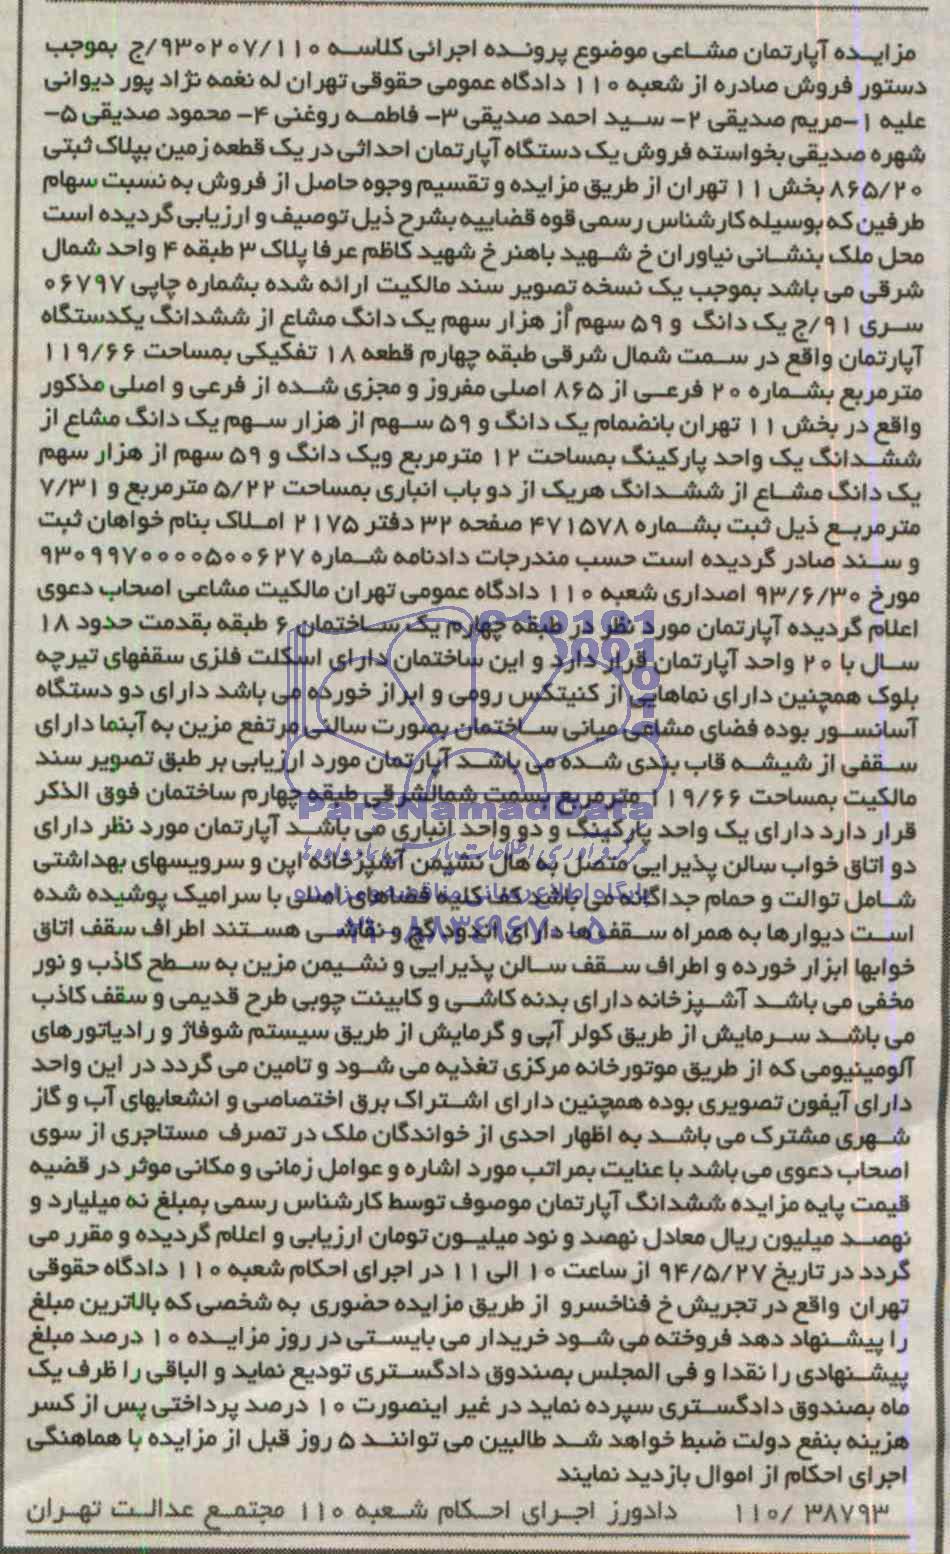 مزایده آپارتمان مشاعی موضوع پرونده اجرائی کلاسه ۹۳۰۲۰۷/۱۱۰/ج بموجب
دستور فروش صادره از شعبه ۱۱۰ دادگاه عمومی حقوقی تهران له نغمه نژاد پور دیوانی
علیه ۱-مریم صدیقی ۲- سید احمد صدیقی ۳- فاطمه روغنی ۴- محمود صدیقی ۵-
شهره صدیقی بخواسته فروش یک دستگاه آپارتمان احداثی در یک قطعه زمین بپلاک ثبتی
۸۶۵/۲۰ بخش ۱۱ تهران از طریق مزایده و تقسیم وجوه حاصل از فروش به نسبت سهام
طرفین که بوسیله کارشناس رسمی قوه قضاییه بشرح ذیل توصیف و ارزیابی گردیده است
محل ملک بنشانی نیاوران خ شهید باهنر خ شهید کاظم عرفا پلاک ۳ طبقه ۴ واحد شمال
شرقی می باشد بموجب یک نسخه تصویر سند مالکیت ارائه شده بشماره چاپی ۰۶۷۹۷
سری ۹۱/ج یک دانگ و ۵۹ سهم از هزار سهم یک دانگ مشاع از ششدانگ یکدستگاه
آپارتمان واقع در سمت شمال شرقی طبقه چهارم قطعه ۱۸ تفکیکی بمساحت ۱۱۹/۶۶
مترمربع بشماره ۲۰ فرعی از ۸۶۵ اصلی مفروز و مجزی شده از فرعی و اصلی مذکور
واقع در بخش ۱۱ تهران بانضمام یک دانگ و ۵۹ سهم از هزار سهم یک دانگ مشاع از
ششدانگ یک واحد پارکینگ بمساحت ۱۲ مترمربع ویک دانگ و ۵۹ سهم از هزار سهم
یک دانگ مشاع از ششدانگ هریک از دو باب انباری بمساحت ۵/۲۲ مترمربع و ۷/۳۱
مترمربع ذیل ثبت بشماره ۴۷۱۵۷۸ صفحه ۳۲ دفتر ۲۱۷۵ املاک بنام خواهان ثبت
و سند صادر گردیده است حسب مندرجات دادنامه شماره ۹۳۰۹۹۷۰۰۰۰۵۰۰۶۲۷
مورخ ۹۳/۶/۳۰ اصداری شعبه ۱۱۰ دادگاه عمومی تهران مالکیت مشاعی اصحاب دعوی
اعلام گردیده آپارتمان مورد نظر در طبقه چهارم یک ساختمان ۶ طبقه بقدمت حدود ۱۸
سال با ۲۰ واحد آپارتمان قرار دارد و این ساختمان دارای اسکلت فلزی سقفهای تیرچه
بلوک همچنین دارای نماهایی از کنیتکس رومی و ابراز خورده می باشد دارای دو دستگاه
آسانسور بوده فضای مشاعی میانی ساختمان بصورت سالنی مرتفع مزین به آبنما دارای
سقفی از شیشه قاب بندی شده می باشد آپارتمان مورد ارزیابی بر طبق تصویر سند
مالکیت بمساحت ۱۱۹/۶۶ مترمربع بسمت شمالشرقی طبقه چهارم ساختمان فوق الذکر
ParsNamadData
قرار دارد دارای یک واحد پارکینگ و دو واحد انباری می باشد آپارتمان مورد نظر دارای
دو اتاق خواب سالن پذیرایی متصل به هال نشیمن آشپزخانه اپن و سرویسهای بهداشتی
شامل توالت و حمام جداگانه می باشد کف کلیه فضاهای اصلی با سرامیک پوشیده شده
است دیوارها به همراه سقف ها دارای اندود گچ و نقاشی هستند اطراف سقف اتاق
خوابها ابزار خورده و اطراف سقف سالن پذیرایی و نشیمن مزین به سطح کاذب و نور
مخفی می باشد آشپزخانه دارای بدنه کاشی و کابینت چوبی طرح قدیمی و سقف کاذب
می باشد سرمایش از طریق کولر آبی و گرمایش از طریق سیستم شوفاژ و رادیاتورهای
آلومینیومی که از طریق موتورخانه مرکزی تغذیه می شود و تامین می گردد در این واحد
دارای آیفون تصویری بوده همچنین دارای اشتراک برق اختصاصی و انشعابهای آب و گاز
شهری مشترک می باشد به اظهار احدی از خواندگان ملک در تصرف مستاجری از سوی
اصحاب دعوی می باشد با عنایت بمراتب مورد اشاره و عوامل زمانی و مکانی موثر در قضیه
قیمت پایه مزایده ششدانگ آپارتمان موصوف توسط کارشناس رسمی بمبلغ نه میلیارد و
نهصد میلیون ریال معادل نهصد و نود میلیون تومان ارزیابی و اعلام گردیده و مقرر می
گردد در تاریخ ۹۴/۵/۲۷ از ساعت ۱۰ الی ۱۱ در اجرای احکام شعبه ۱۱۰ دادگاه حقوقی
تهران واقع در تجریش خ فناخسرو از طریق مزایده حضوری به شخصی که بالاترین مبلغ
را پیشنهاد دهد فروخته می شود خریدار می بایستی در روز مزایده ۱۰ درصد مبلغ
پیشنهادی را نقدا و فی المجلس بصندوق دادگستری تودیع نماید و الباقی را ظرف یک
ماه بصندوق دادگستری سپرده نماید در غیر اینصورت ۱۰ درصد پرداختی پس از کسر
هزینه بنفع دولت ضبط خواهد شد طالبین می توانند ۵ روز قبل از مزایده با هماهنگی
اجرای احکام از اموال بازدید نمایند
۱۱۰/۳۸۷۹۳ دادورز اجرای احکام شعبه ۱۱۰ مجتمع عدالت تهران